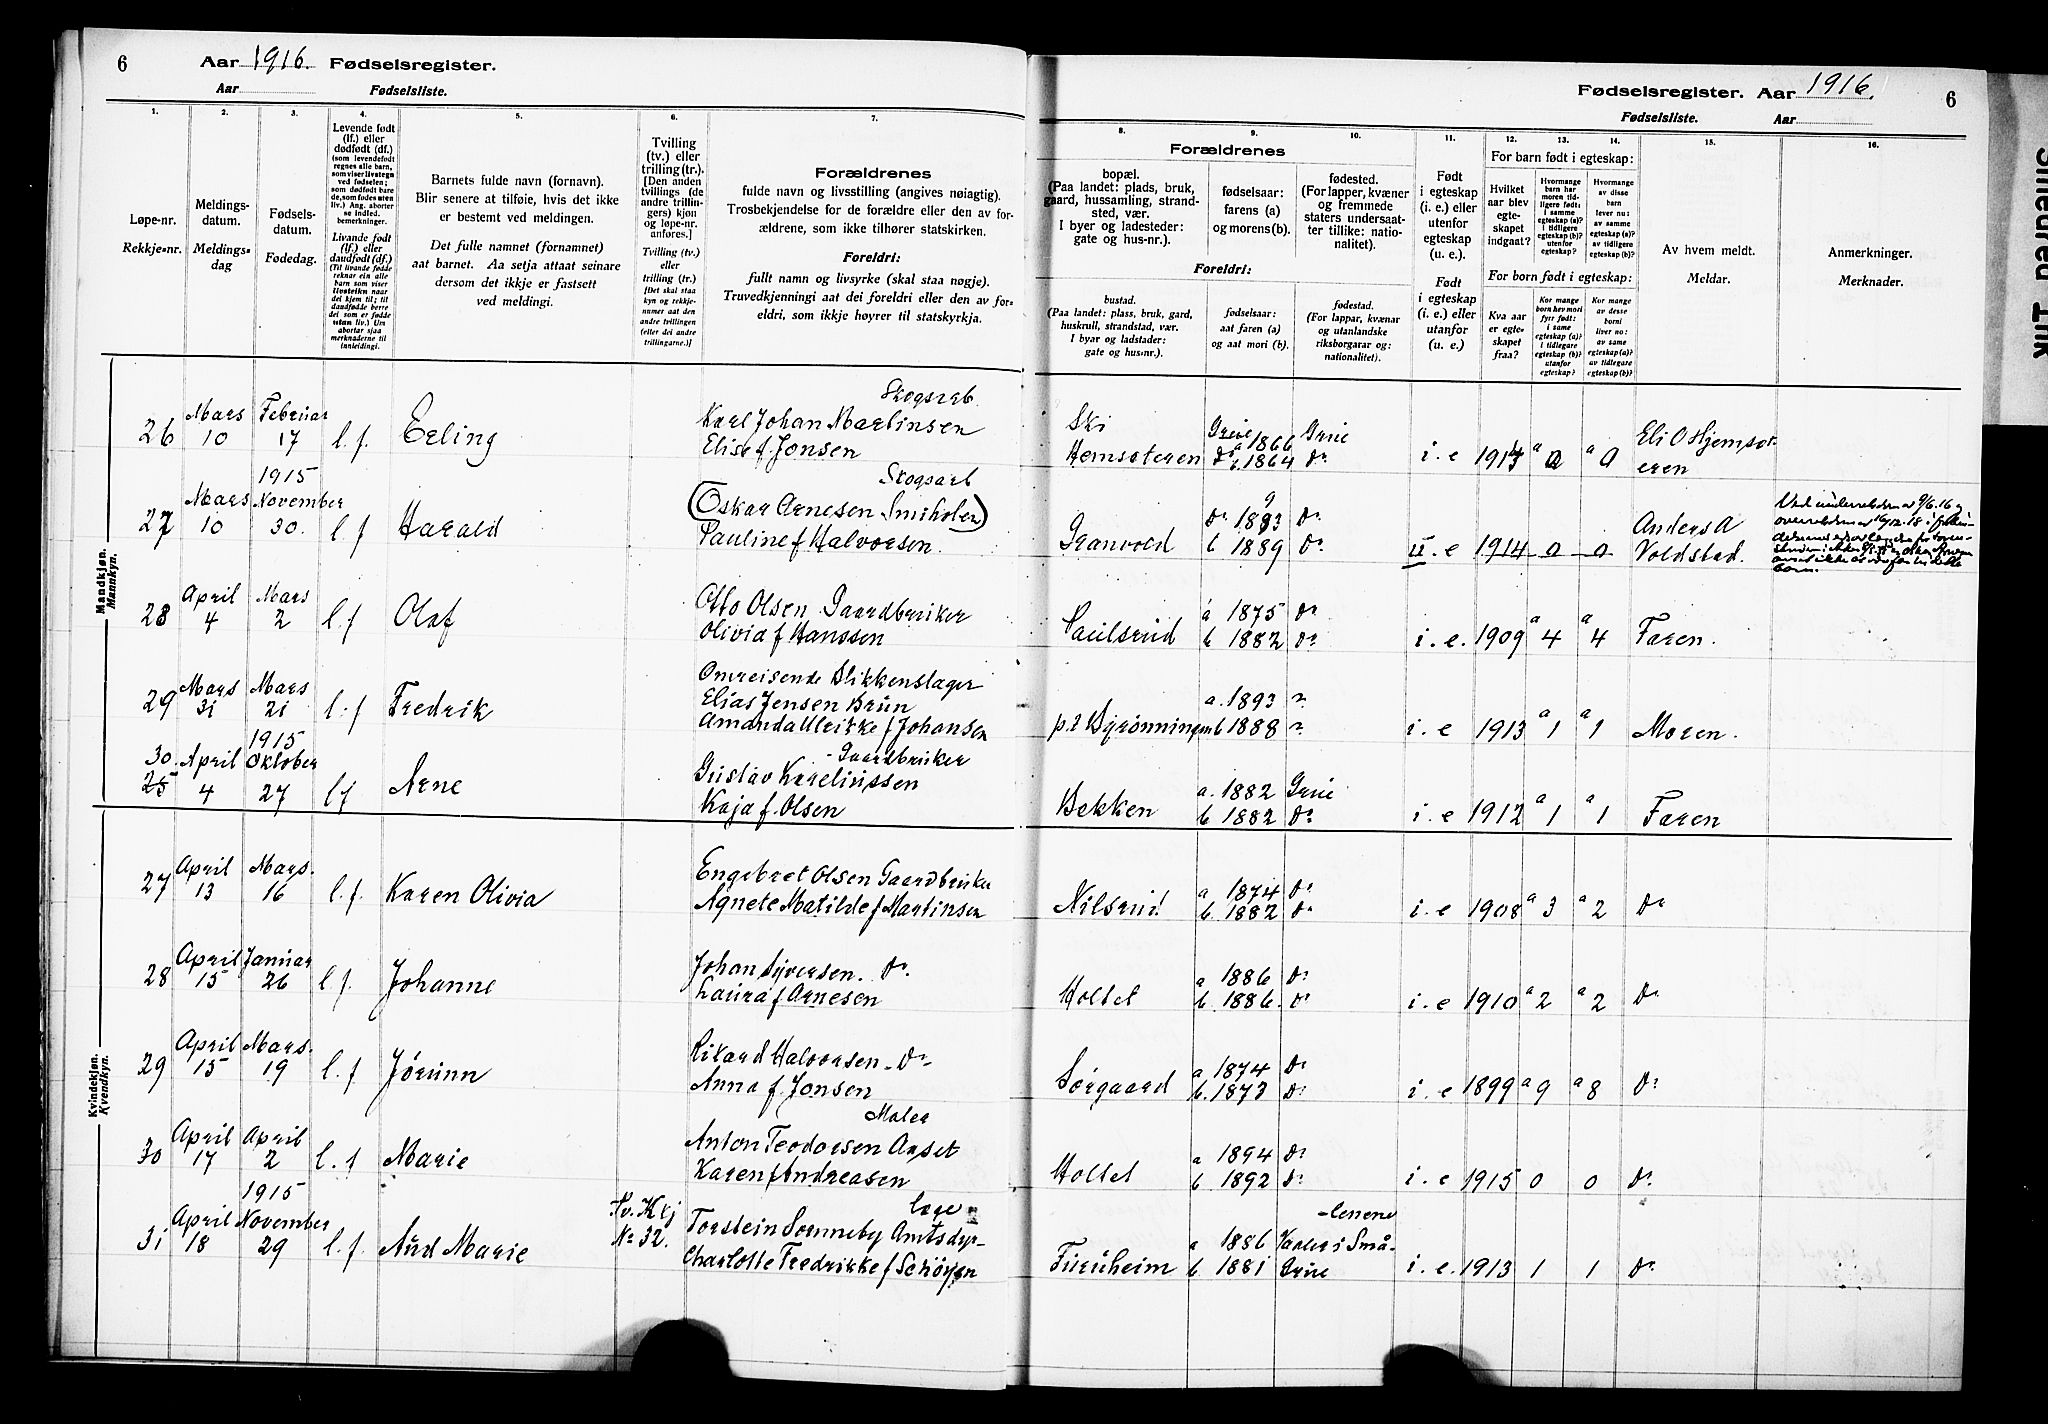 6
Aar 1916. Fødselsregister.
Aar Fødselsliste.
Fødselsregister. Aar 1916.
6
Fødselsliste. Aar
1.
Løpe-nr.
Rekkje-nr.
2.
Meldings-
datum.
Meldings-
dag
3.
Fødsels-
datum.
Fødedag.
4.
Levende født
(lf.) eller
dødfødt (df.)
(som levendefødt
regnes alle barn,
som viser livstegn
ved fødselen;
som dødfødt bare
de, som fødes uten
liv.) Ang. aborter
se indled.
bemerkninger.
Livande født
(lf.) eller
daudfødt (df.)
(Til livande fødde
reknar ein alle
barn som viser
livsteikn naar
del kjem til; til
daudfødde berre
dei som er fødde
utan liv.) Um
abortar sjaa
merknaderne til
innleidingi.
5.
Barnets fulde navn (fornavn).
Blir senere at tilføie, hvis det ikke
er bestemt ved meldingen.
Det fulle namnet (fornamnet)
aat barnet. Aa setja attaat seinare
dersom det ikkje er fastsett
ved meldingi.
6.
Tvilling
(tv.) eller
trilling (tr.)
[Den anden
tvillings (de
andre trillin-
gers) kjøn
og løpe-nr.
anføres.]
Tvilling (tv.)
eller
trilling (tr.)
[Det skal staa
kyn og rekkje-
numer aat den
andre tvillingen
(eller dei andre
trillingarne.)]
7.
Forældrenes
fulde navn og livsstilling (angives nøiagtig).
Trosbekjendelse for de forældre eller den av for-
ældrene, som ikke tilhører statskirken.
Foreldri:
fullt namn og livsyrke (skal staa nøgje).
Truvedkjenningi aat dei foreldri eller den av for-
eldri, som ikkje høyrer til statskyrkja.
Forældrenes
8.
bopæl.
(Paa landet: plads, bruk,
gaard, hussamling, strand-
sted, vær.
I byer og ladesteder:
gate og hus-nr.).
9.
fødselsaar:
farens (a)
og morens (b).
10.
fødested.
(For lapper, kvæner
og fremmede
staters undersaat-
ter tillike: natio-
nalitet).
Foreldri:
bustad.
(Paa landet: plass, bruk, gard,
huskrull, strandstad, vær.
I byar og ladstader:
gate og hus-nr.).
fødselsaar:
aat faren (a)
og aat mori (b).
fødestad.
(For lappar, kvænar
og utanlandske
riksborgarar og:
nationalitet).
11.
Født
i egteskap
(i. e.) eller
utenfor
egteskap
(u. e.).
Født
i egteskap
(i. e.) eller
utanfor
egteskap
(u. e.)
For barn født i egteskap:
12.
Hvilket
aar blev
egte-
skapet
indgaat?
13.
Hvormange
barn har
moren tid-
ligere født:
i samme
egteskap (a)?
i tidligere
egteskap (b)?
utenfor
egteskap?
14.
Hvormange
av disse
barn
lever nu:
av samme
egteskap (a)?
av tidligere
egteskap (b)?
For born født i egteskap:
Kva aar
er egte-
skapet
fraa?
Kor mange
born hev mori
fyrr født:
i same
egteskap (a)?
i tidlegare
egteskap (b)?
utanfor
egteskap?
Kor mange
av desse
borni
liver no:
av same
egteskap (a)?
av tidlegare
egteskap (b)?
15.
Av hvem meldt.
Meldar.
16.
Anmerkninger.
Merknader.
Mandkjøn.
Mannkyn.
26 Mars 10 Februar 17 l. f. Erling
Skogsarb.
Karl Johan Martinsen
Elise f. Jonsen
Ski
Hemsæteren Grue a 1866 Grue
Do b. 1864 Do i. e a 0 a 0 Eli O Hjemsæt-
eren
27 Mars 10 1915 November 30. l. f Harald
Skogsarb
(Oskar Arnesen Smiholen)
Pauline f Halvorsen.
Granvold Do Do
b 1889 Do u. e 1914 0 0 Anders A
Voldstad.
barn.
28 April 4 Mars 2 l. f Olaf
Otto Olsen Gaardbruker
Olivia f Hanssen
Paulsrud a 1875 Do
b 1882 Do i. e. 1909 a 4 a 4 Faren.
29 Mars 31 Mars 21 l. f Fredrik
Omreisende Blikkenslager
Elias Jensen Brun
Amanda Ulrikke f Johansen
a. 1893 ?
b 1888 ? i. e 1913 a 1 a 1 Moren.
30. 25 April 4 1915 Oktober 27 l f Arne
Gaardbruker
Gustav Kareliussen
Kaja f. Olsen
Bekken a. 1882 Grue
b. 1882 Do i. e 1912 a 1 a 1 Faren
Kvindekjøn.
Kvendkyn.
27 April 13 Mars. 16 l. f. Karen Olivia
Engebret Olsen Gaardbruker
Agnete Matilde f Martinsen
Nilsrud a 1874 Do
b. 1882 Do i. e 1908 a 3 a 2 Do
28 April 15 Januar 26 l f. Johanne
Johan Syversen. Do.
Laura f Arnesen
Holtet a 1886 Do
b. 1886. Do i. e 1910 a 2 a 2 Do
29 April 15 Mars. 19 l. f Jørunn
Rikard Halvorsen - Do -
Anna f. Jonsen
Sørgaard a 1874 Do
b. 1873 Do i. e 1899 a 9 a 8 Do
30 April 17 April 2 l. f Marie
Maler
Anton Teodorsen Opset
Karen f Andreasen
Holtet a 1894 Do
b. 1892 Do i. e 1915 0 0 Do
31 April 18 1915 November 29 l. f. Aud Marie
Tv. Kkj
No 32.
læge
Torstein Sønneby Amtsdyr-
Charlotte Fredrikke f Schöyen
Furuheim a 1886 Vaaler i Små-
-lenene
b 1881 Grue i. e. 1913 1 1 Do